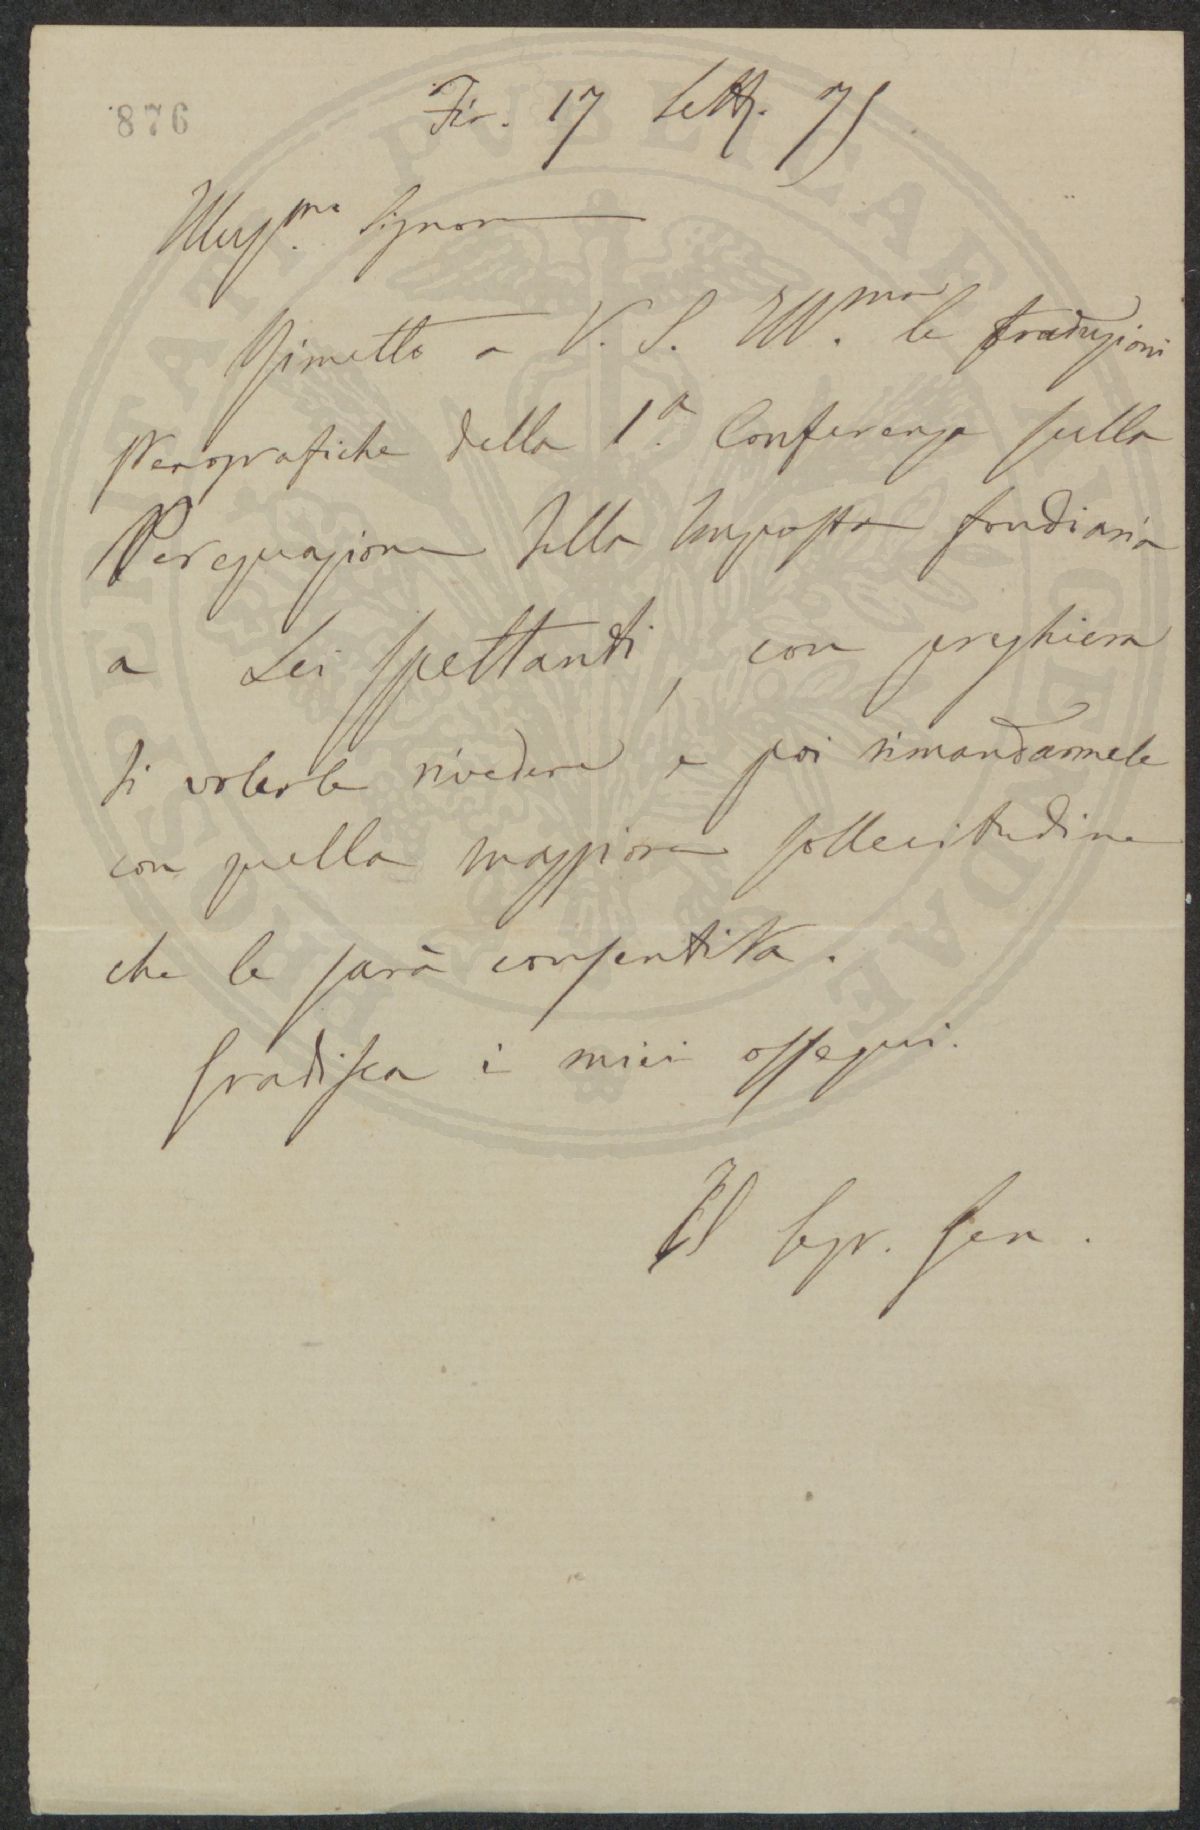 876
Fir. 17 Sett. 75
Illus.ma Signor
Rimetto a V. S. Ill.ma le traduzioni
stenografiche della 1.a Conferenza sulla
Perequazione della Imposta fondiaria
a Lei spettanti, con preghiera
di volerle rivedere e poi rimandarmele
con quella maggiore sollecitudine
che le sarà consentita.
Gradisca i miei ossequi.
Il Segr. Gen.